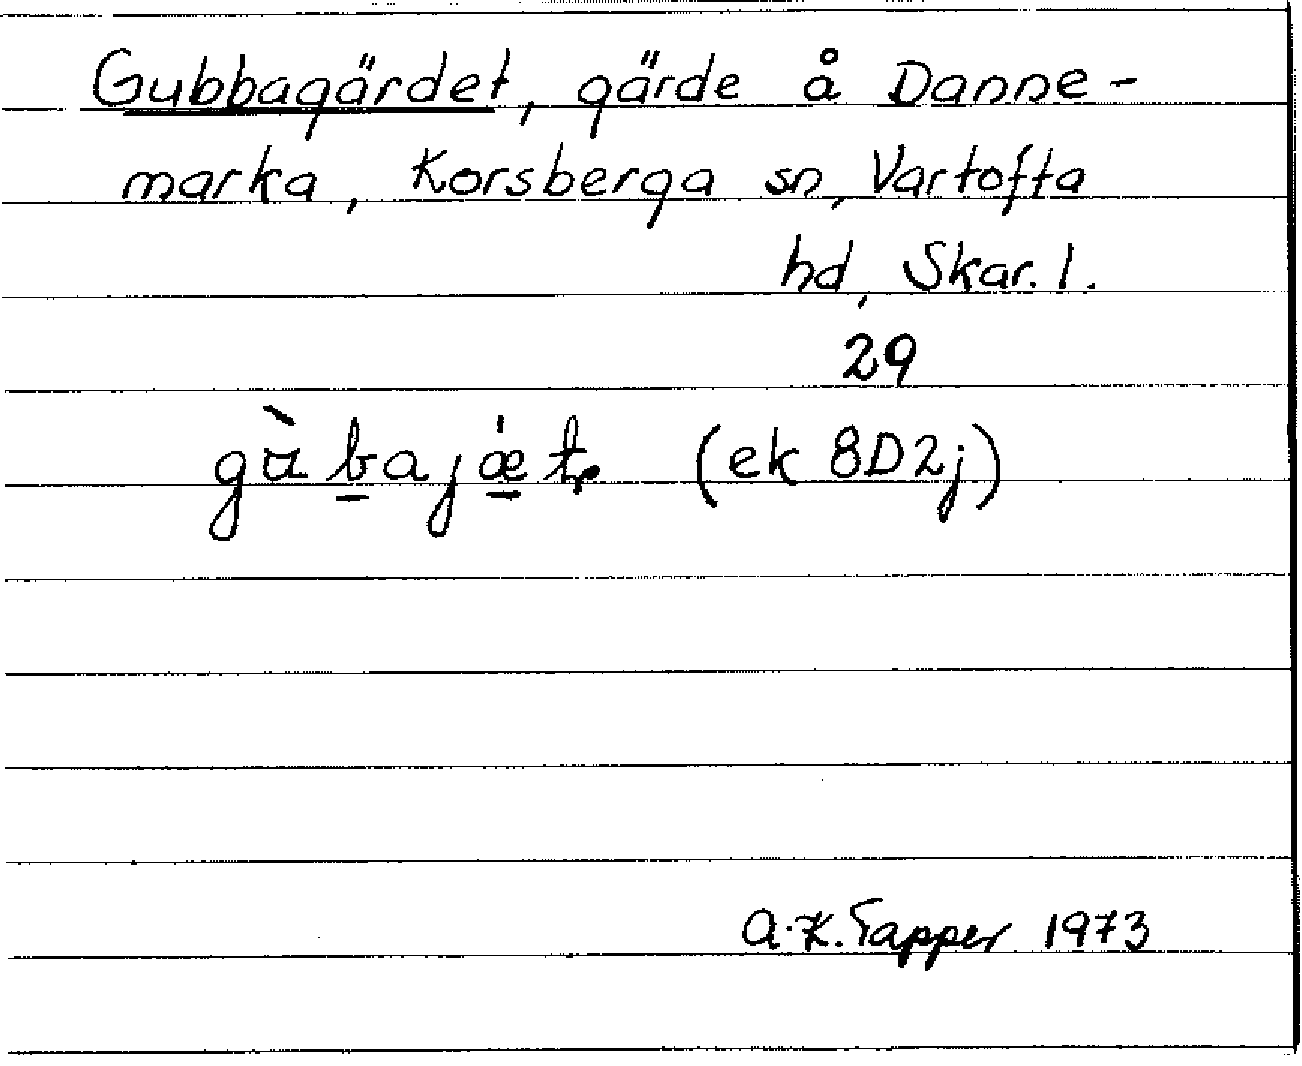 Gubbagärdet, gärde å Danne-
marka, Korsberga sn, Vartofta
hd, Skar. l.
29
(ek 8D2j)
A.-K. Tapper 1973